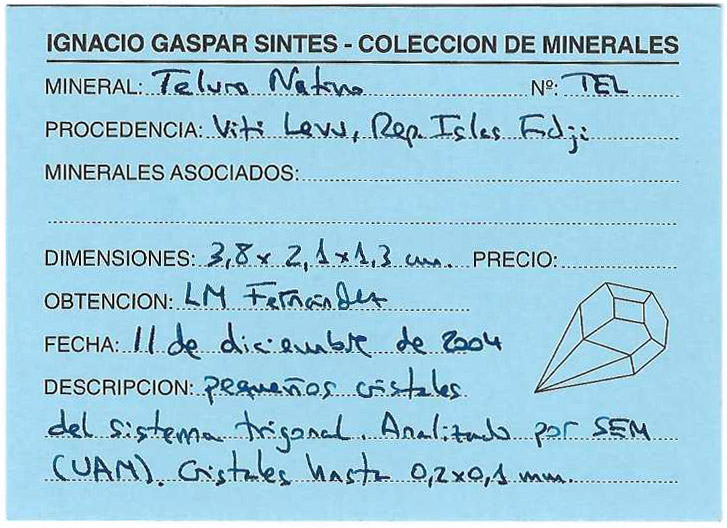 IGNACIO GASPAR SINTES - COLECCION DE MINERALES
MINERAL: Teluro Nativo Nº: TEL
PROCEDENCIA: Viti Levu, Rep. Islas Fidji
MINERALES ASOCIADOS:
DIMENSIONES: 3,8 x 2,1 x 1,3 cm. PRECIO:
OBTENCION: LM Fernández
FECHA: 11 de diciembre de 2004
DESCRIPCION: pequeños cristales
del sistema trigonal. Analizado por SEM
(UAM). Cristales hasta 0,2x0,1 mm.